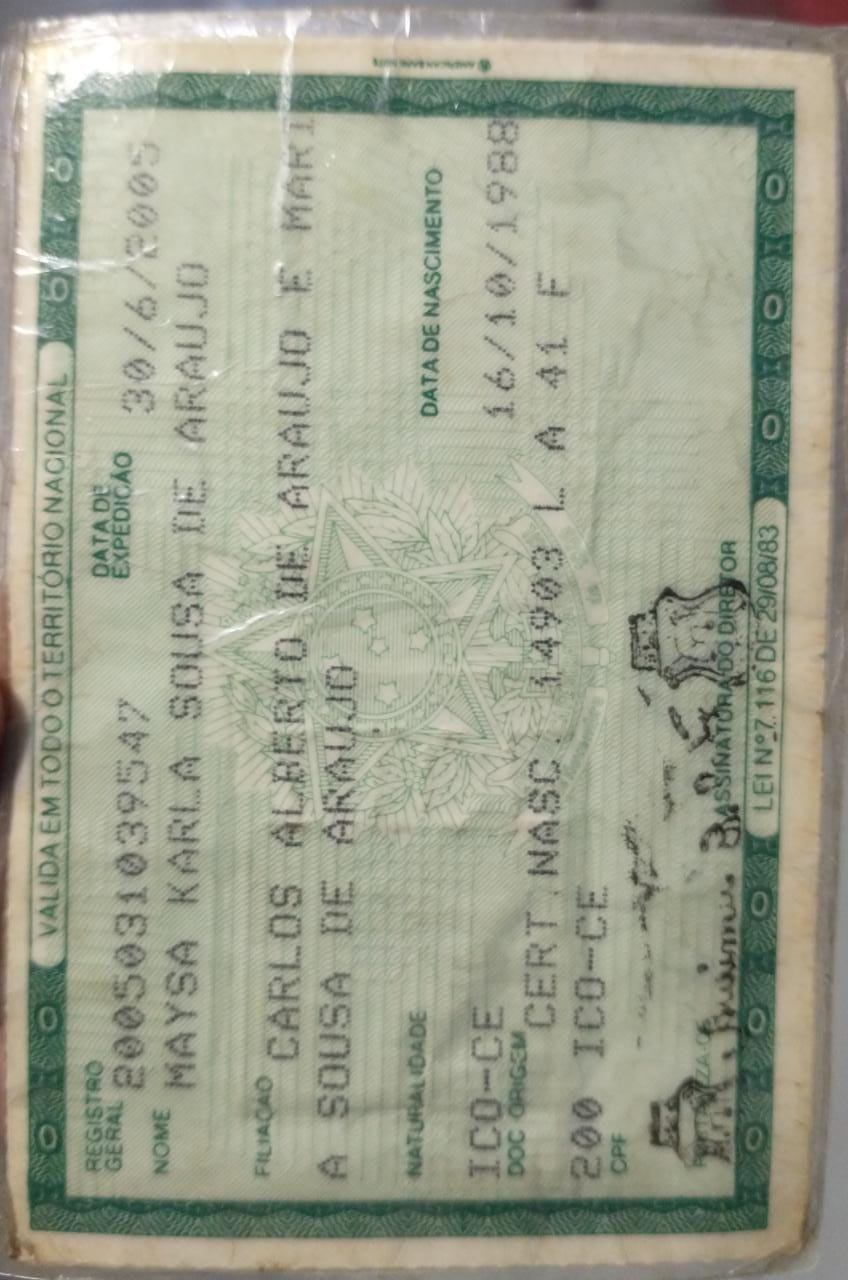 VALIDA EM TODO O TERRITÓRIO NACIONAL
REGISTRO GERAL 2005031039547 DATA DE EXPEDIÇÃO 30/6/2005
NOME MAYSA KARLA SOUSA DE ARAUJO
FILIAÇÃO CARLOS ALBERTO DE ARAUJO E MARI
A SOUSA DE ARAUJO
NATURALIDADE DATA DE NASCIMENTO
ICO-CE 16/10/1988
DOC ORIGEM CERT.NASC. 14903 L A 41 F
200 ICO-CE
CPF
ASSINATURA DO DIRETOR
LEI Nº 7.116 DE 29/08/83